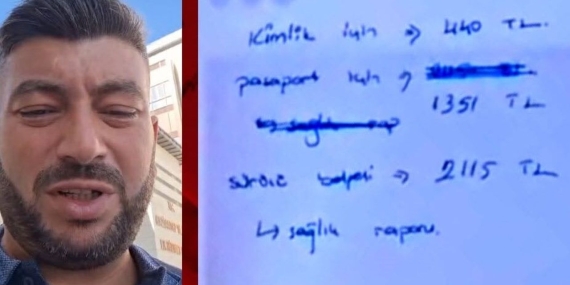 Kimlik için → 440 TL.
pasaport için →
1351 TL
sürücü belgesi → 2115 TL
↳ sağlık raporu.